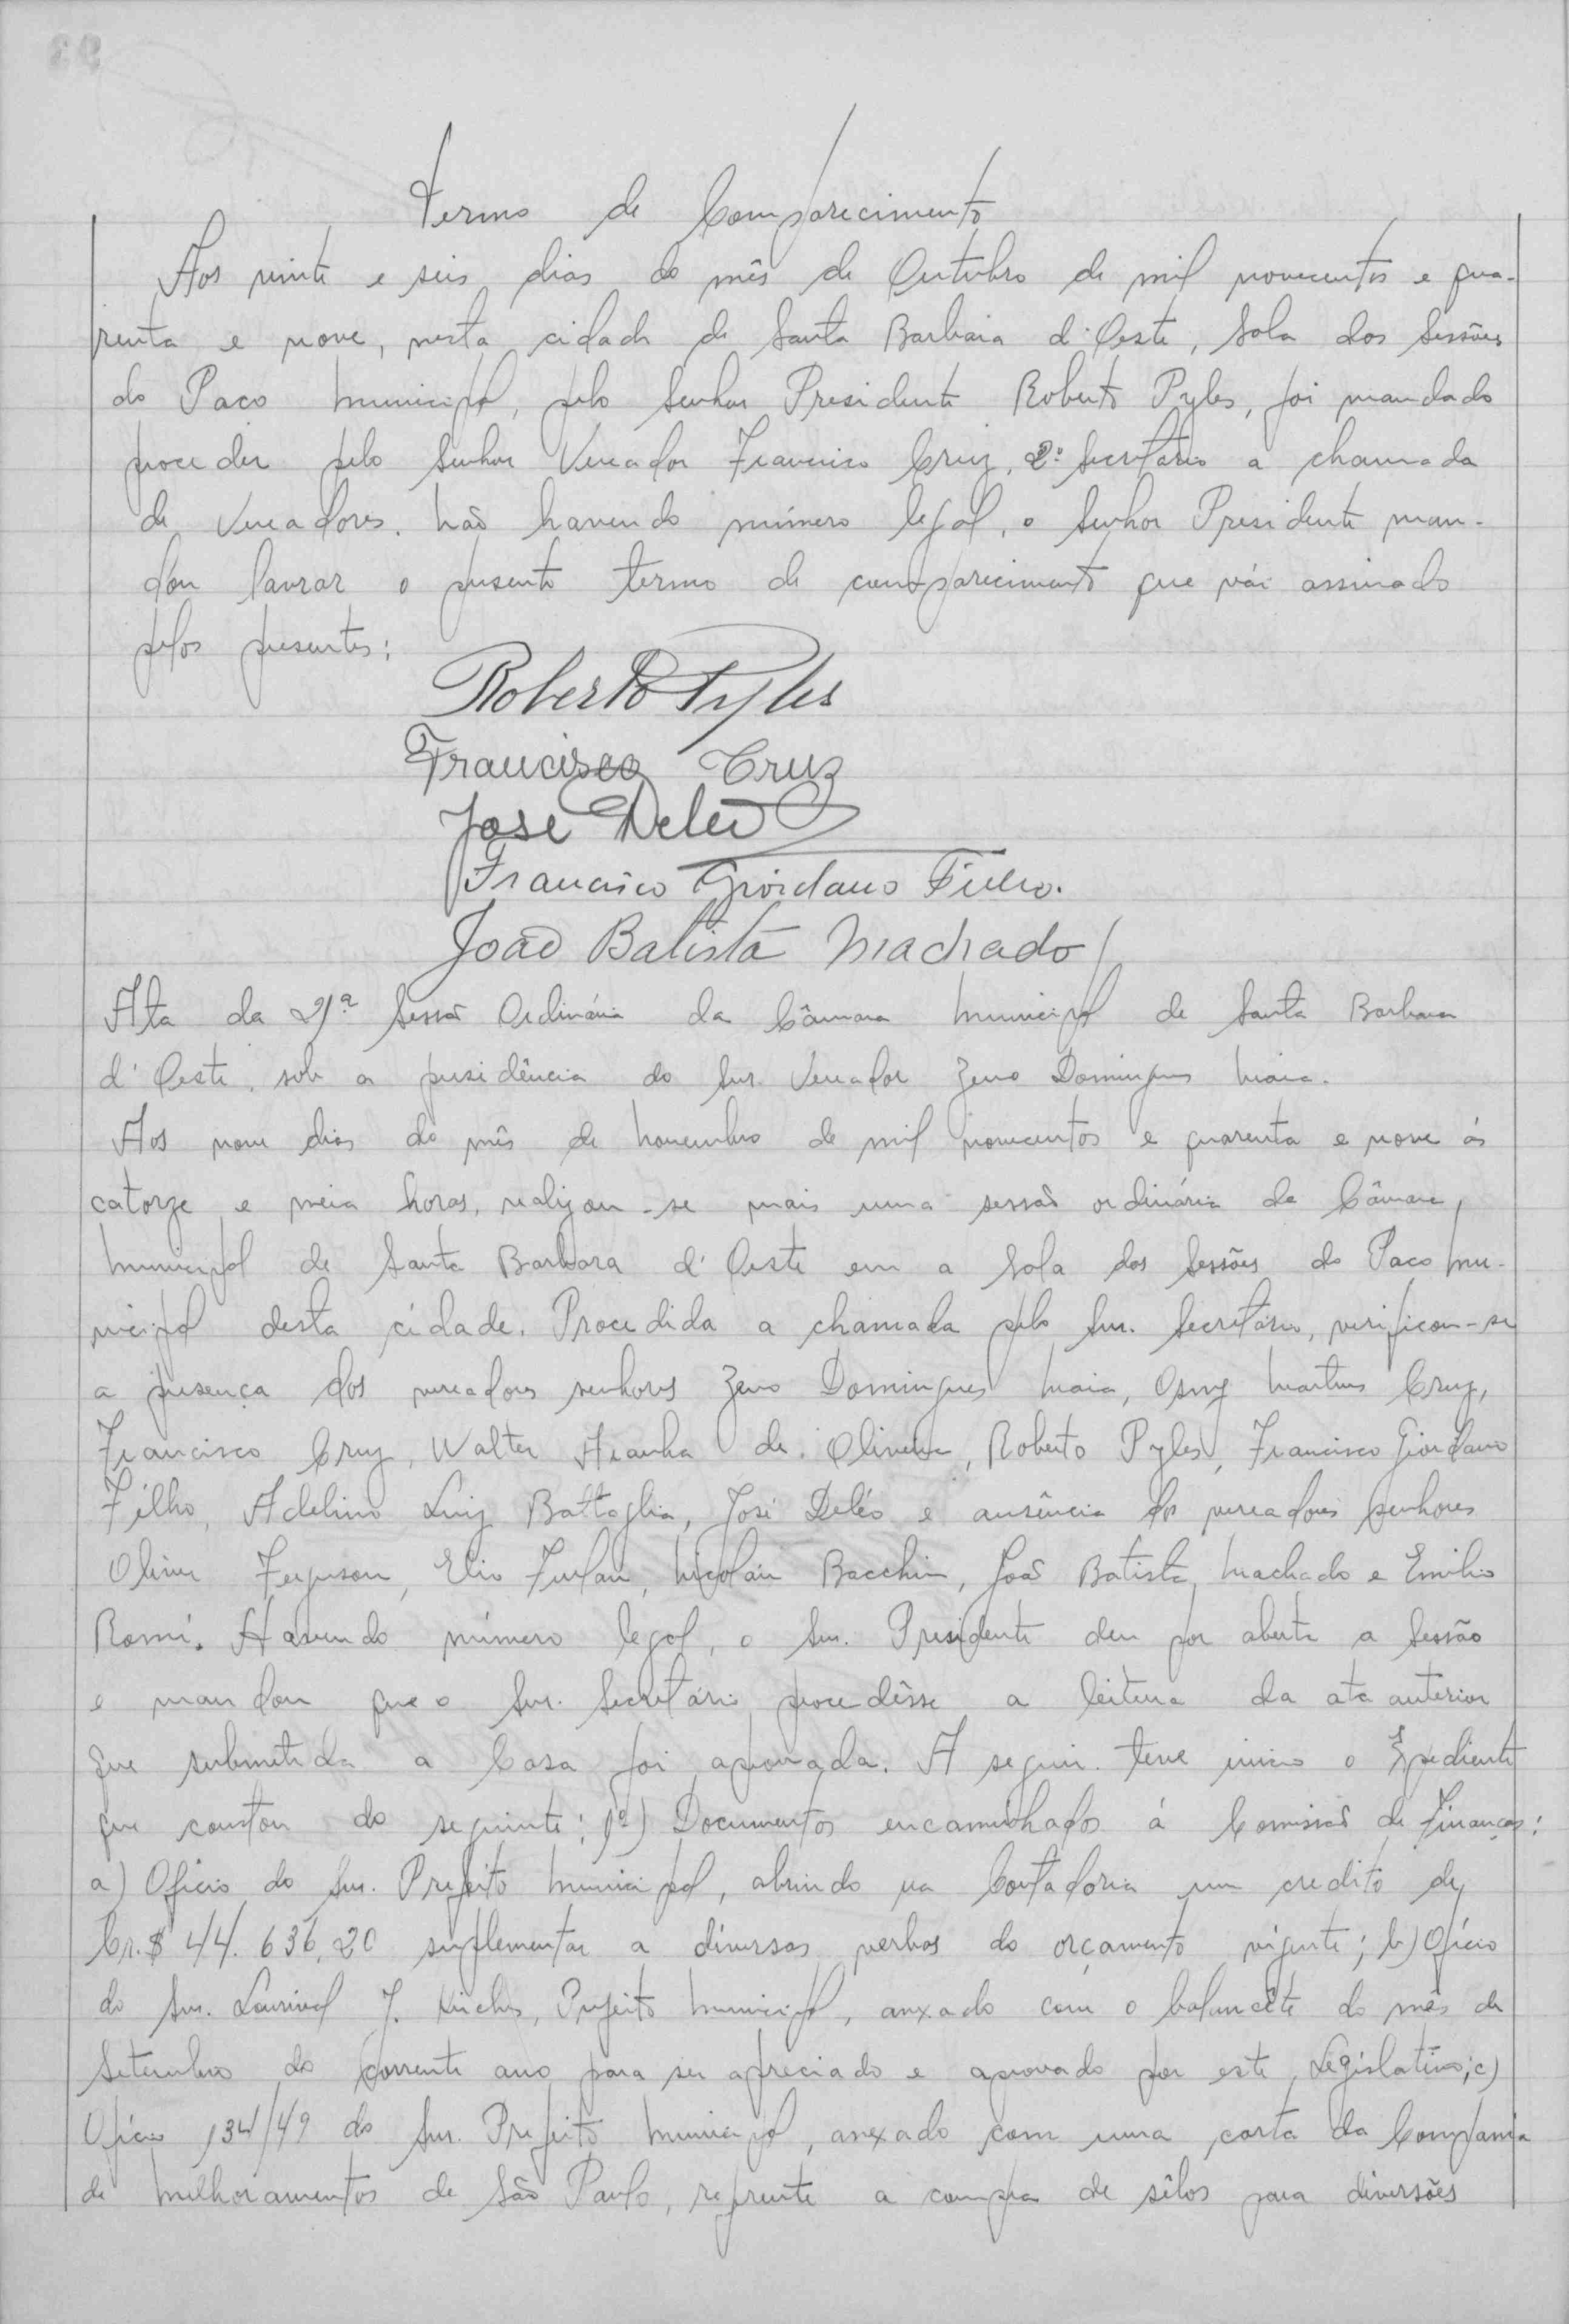 Termo de Comparecimento
Aos vinte e seis dias do mês de Outubro de mil novecentos e qua-
renta e nove, nesta cidade de Santa Barbara d'Oeste, Sala das Sessões
do Paço Municipal, pelo Senhor Presidente Roberto Pyles, foi mandado
proceder pelo Senhor Vereador Francisco Cruz, 2º Secretário a chamada
de Vereadores. Não havendo número legal, o Senhor Presidente man-
dou lavrar o presente termo de comparecimento que vái assinado
pelos presentes:
Roberto Pyles
Francisco Cruz
José Deléo
Francisco Giordano Filho.
João Batista Machado
Ata da 21ª Sessão Ordinária da Câmara Municipal de Santa Barbara
d'Oeste, sob a presidência do Snr. Vereador Zeno Domingues Maia.
Aos nove dias do mês de Novembro de mil novecentos e quarenta e nove ás
catorze e meia horas, realizou-se mais uma sessão ordinária da Câmara
Municipal de Santa Barbara d'Oeste em a Sala das Sessões do Paço Mu-
nicipal desta cidade. Procedida a chamada pelo Snr. Secretário, verificou-se
a presença dos vereadores senhores Zeno Domingues Maia, Osny Martins Cruz,
Francisco Cruz, Walter Aranha de Oliveira, Roberto Pyles, Francisco Giordano
Filho, Adelino Luiz Battaglia, José Deléo e ausência dos vereadores senhores
Oliver Ferguson, Elio Furlan, Nicoláu Bacchin, João Batista Machado e Emilio
Romi. Havendo número legal, o Snr. Presidente deu por aberta a Sessão
e mandou que o Snr. Secretário procedêsse a leitura da ata anterior
que submetida a Casa foi aprovada. A seguir teve inicio o Expediente
que constou do seguinte: 1º) Documentos encaminhados á Comissão de Finanças:
a) Oficio do Snr. Prefeito Municipal, abrindo na Contadoria um credito de
Cr.$ 44.636,20 suplementar a diversas verbas do orçamento vigente; b) Ofício
do Snr. Lourival J. Prefeito Municipal, anexado com o balancête do mês de
Setembro do corrente ano para ser apreciado e aprovado por este Legislativo; c)
Ofício 134/49 do Snr. Prefeito Municipal, anexado com uma carta da Compania
de Melhoramentos de São Paulo, referente a compra de sêlos para diversões